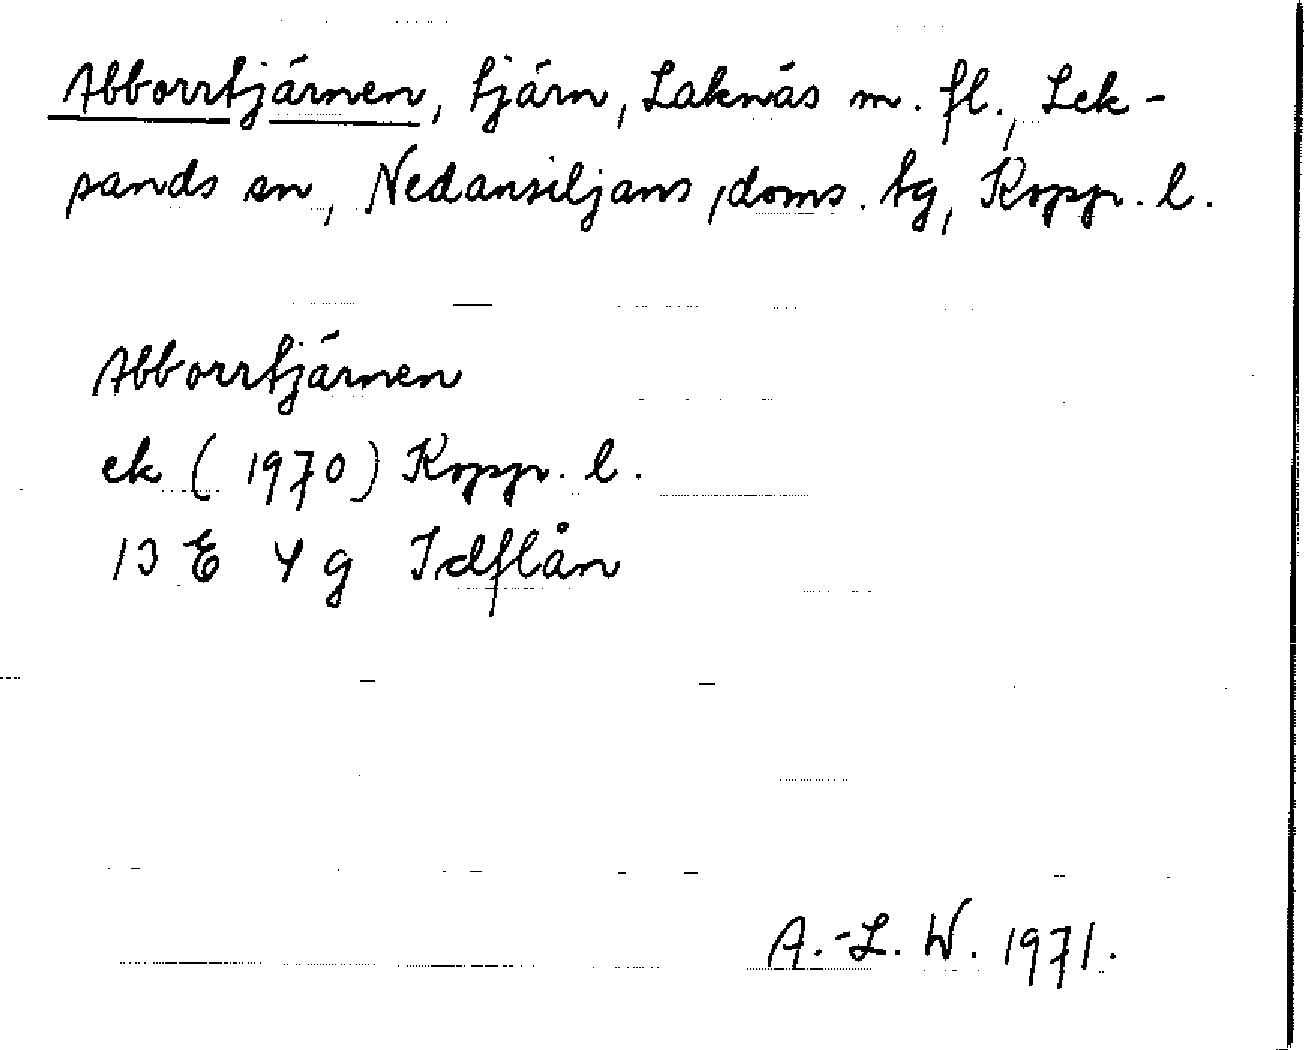 Abborrtjärnen, tjärn, Laknäs m. fl., Lek-
sands sn, Nedansiljans doms. tg, Kopp. l.
Abborrtjärnen
ek (1970) Kopp. l.
13 E 4 g Idflån
A.-L. W. 1971.